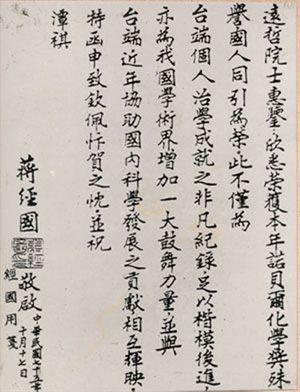 遠哲院士惠鑒：欣悉榮獲本年諾貝爾化學獎殊
譽，國人同引為榮。此不僅為
台端個人治學成就之非凡紀錄，足以楷模後進，
亦為我國學術界增加一大鼓舞力量，並與
台端近年協助國內科學發展之貢獻相互輝映。
特函申致欽佩忭賀之忱，並祝
潭祺
蔣經國
敬啟
中華民國七十五年
十月十七日
經國用箋